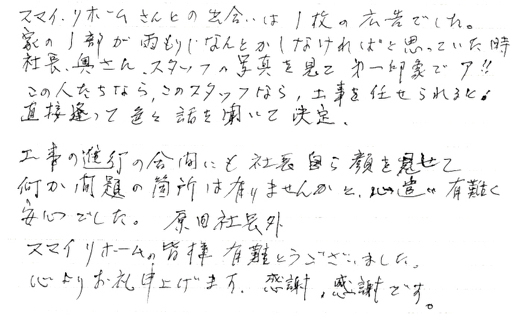 スマイリホームさんとの出会いは1枚の広告でした。
家の1部が雨もりしなんとかしなければと思っていた時
社長、奥さん、スタッフの写真を見て 第一印象でア!!
この人たちなら、このスタッフなら、工事を任せられると!
直接逢って色々話を聞いて決定。
工事の進行の合間にも社長自ら顔を見せて
何か問題の箇所は有りませんかと、心遣い有難く
安心でした。 原田社長外
スマイリホームの皆様有難とうございました。
心よりお礼申上げます。感謝、感謝です。